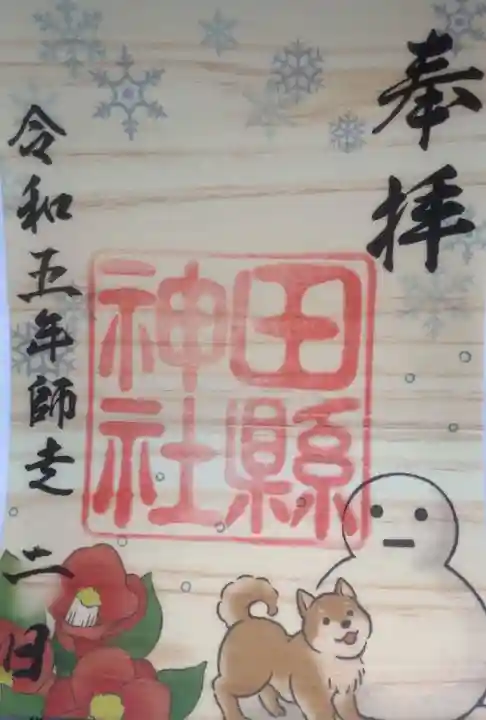 奉拝
田縣
神社
令和五年師走二日